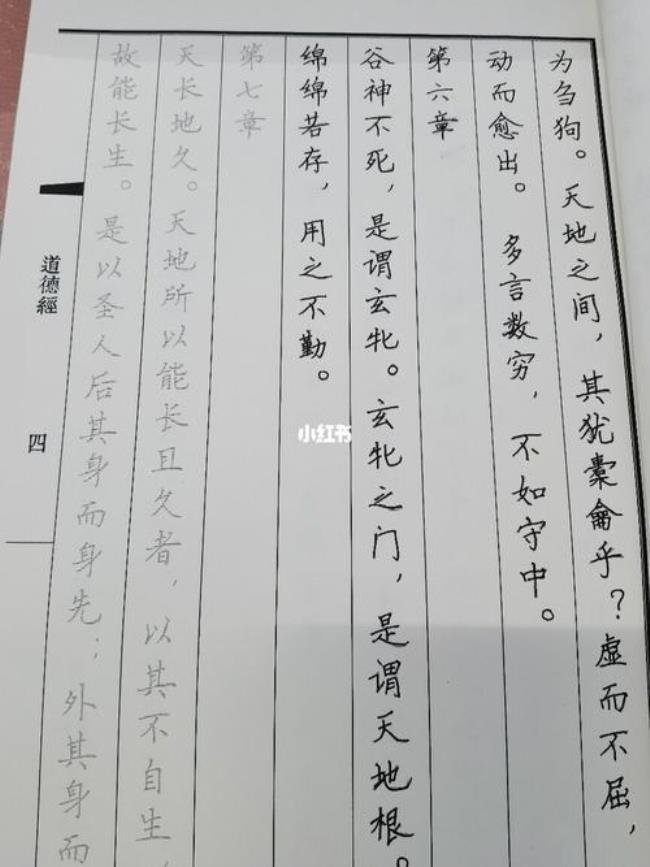 为刍狗。天地之间，其犹橐龠乎？虚而不屈，
动而愈出。多言数穷，不如守中。
第六章
谷神不死，是谓玄牝。玄牝之门，是谓天地根。
绵绵若存，用之不勤。
第七章
天长地久。天地所以能长且久者，以其不自生，
故能长生。是以圣人后其身而身先；外其身而
道德經
四
小红书